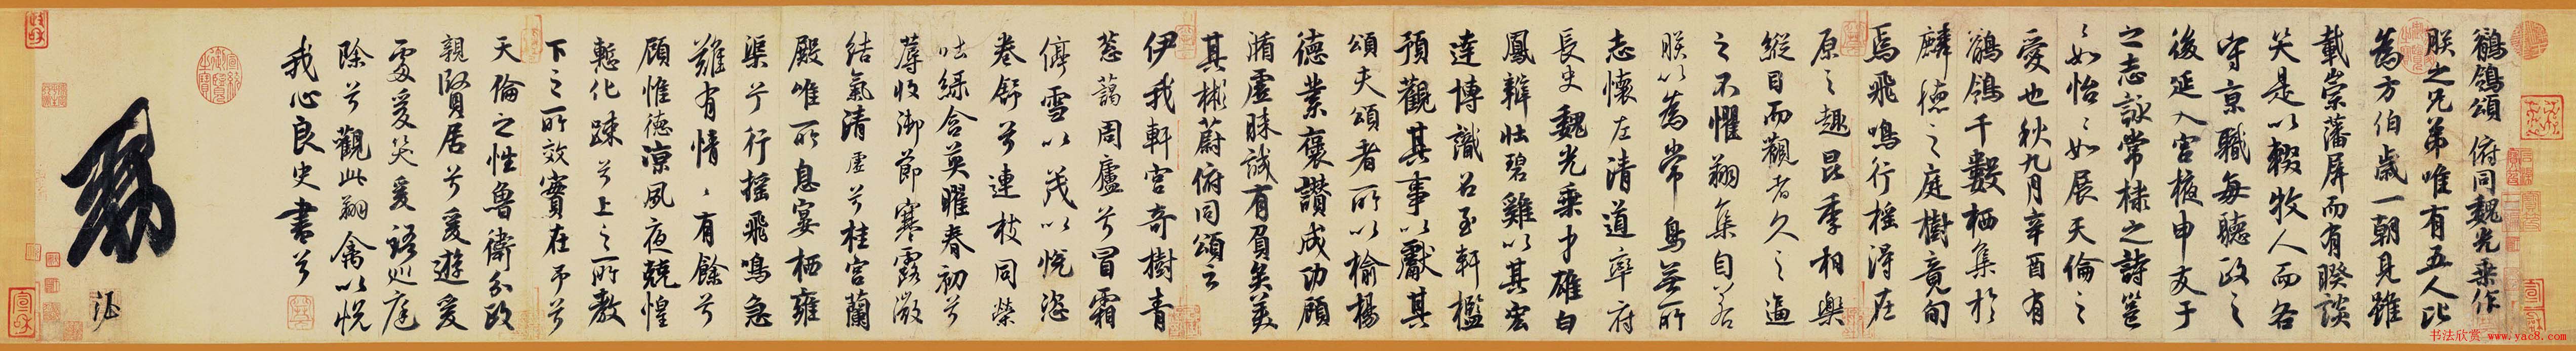 鶺鴒頌 俯同魏光乘作
朕之兄弟唯有五人比
為方伯歲一朝見雖
載崇藩屏而有睽談
笑是以輟牧人而各
守京職每聽政之
後延入宮掖申友于
之志詠常棣之詩邕
〻如怡〻如展天倫之
愛也秋九月辛酉有
鶺鴒千數栖集於
麟德之庭樹竟旬
焉飛鳴行搖得在
原之趣昆季相樂
縱目而觀者久之逼
之不懼翔集自若
朕以為常鳥無所
志懷左清道率府
長史魏光乘才雄白
鳳辯壯碧雞以其宏
達博識召至軒檻
預觀其事以獻其
頌夫頌者所以揄揚
德業褒讚成功顧
循虛昧誠有負矣美
其彬蔚俯同頌云
伊我軒宮奇樹青
蔥藹周廬兮冒霜
停雪以茂以悅恣
卷舒兮連枝同榮
吐綠含英曜春初兮
蓐收御節寒露微
結氣清虛兮桂宮蘭
殿唯所息宴栖雍
渠兮行搖飛鳴急
難有情〻有餘兮
顧惟德涼夙夜兢惶
慙化踈兮上之所教
下之所效實在予兮
天倫之性魯衛分政
親賢居兮爰遊爰
處爰笑爰語巡庭
除兮觀此翔禽以悅
我心良史書兮
敕
书法欣赏 www.yac8.com